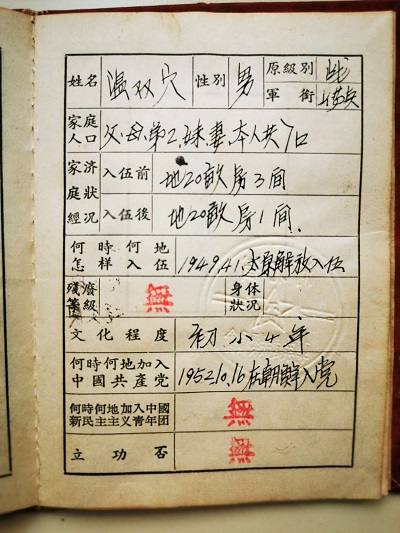 姓名 温双穴 性别 男 原級别 战
軍銜 上等兵
家庭人口 父.母.弟2.妹.妻.本人共7口
家济
庭狀 入伍前 地20畝房3间
經況 入伍後 地20畝房1间.
何時何地
怎樣入伍 1949.4.1.太原解放入伍
殘廢
等級 無 身体
狀況
文化程度 初小4年
何時何地加入
中國共産党 1952.10.16在朝鮮入党
何時何地加入中國
新民主主义青年团 無
立功否 無